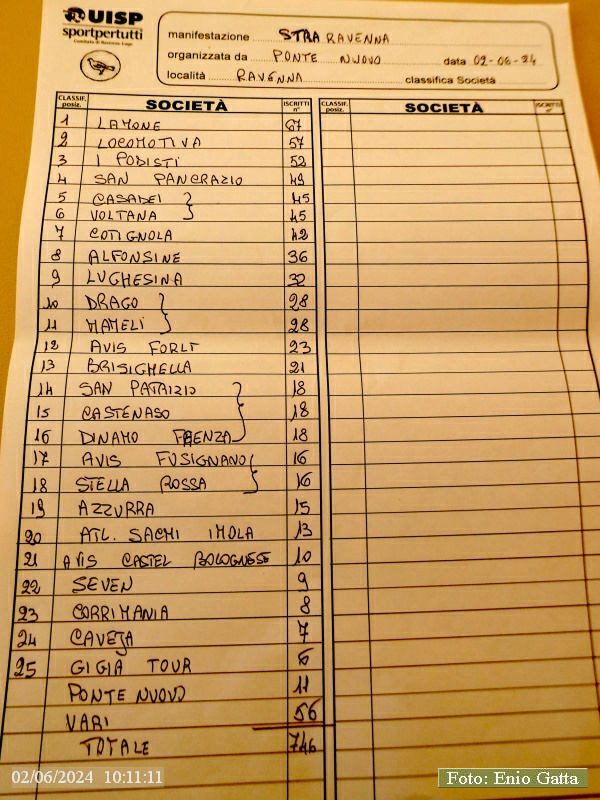 UISP
sportpertutti
Comitato di Ravenna-Lugo
manifestazione STRA RAVENNA
organizzata da PONTE NUOVO data 02-06-24
località RAVENNA classifica Società
CLASSIF. posiz. SOCIETÀ ISCRITTI n° CLASSIF. posiz. SOCIETÀ ISCRITTI n°
1 LAMONE 67
2 LOCOMOTIVA 57
3 I PODISTI 52
4 SAN PANCRAZIO 49
5 CASADEI 45
6 VOLTANA 45
7 COTIGNOLA 42
8 ALFONSINE 36
9 LUGHESINA 32
10 DRAGO 28
11 MAMELI 28
12 AVIS FORLI 23
13 BRISIGHELLA 21
14 SAN PATRIZIO 18
15 CASTENASO 18
16 DINAMO FAENZA 18
17 AVIS FUSIGNANO 16
18 STELLA ROSSA 16
19 AZZURRA 15
20 ATL. SACMI IMOLA 13
21 AVIS CASTEL BOLOGNESE 10
22 SEVEN 9
23 CORRIMANIA 8
24 CAVEJA 7
25 GIGIA TOUR 6
PONTE NUOVO 11
VARI 56
TOTALE 746
02/06/2024 10:11:11
Foto: Enio Gatta